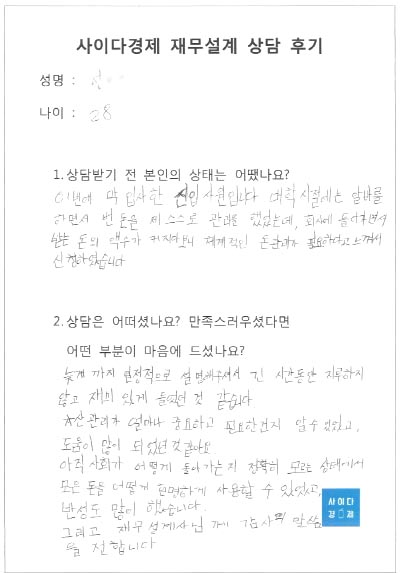 사이다경제 재무설계 상담 후기
성명 :
나이 : 28
1.상담받기 전 본인의 상태는 어땠나요?
이번에 막 입사한 신입사원입니다 대학시절에는 알바를
하면서 번 돈을 제 스스로 관리를 했었는데, 회사에 들어가면서
받는 돈의 액수가 커지다보니 체계적인 돈관리가 필요하다고 느껴서
신청하였습니다
2.상담은 어떠셨나요? 만족스러우셨다면
어떤 부분이 마음에 드셨나요?
늦게 까지 열정적으로 설명해주셔서 긴 시간동안 지루하지
않고 재미 있게 들었던 것 같습니다
자산관리가 얼마나 중요하고 필요한건지 알 수 있었고,
도움이 많이 되었던것 같아요
아직 사회가 어떻게 돌아가는지 정확히 모르는 상태에서
모은 돈을 어떻게 현명하게 사용할 수 있었고,
반성도 많이 했습니다.
그리고 재무설계사님 께 감사의 말씀
을 전합니다
사이다
경제